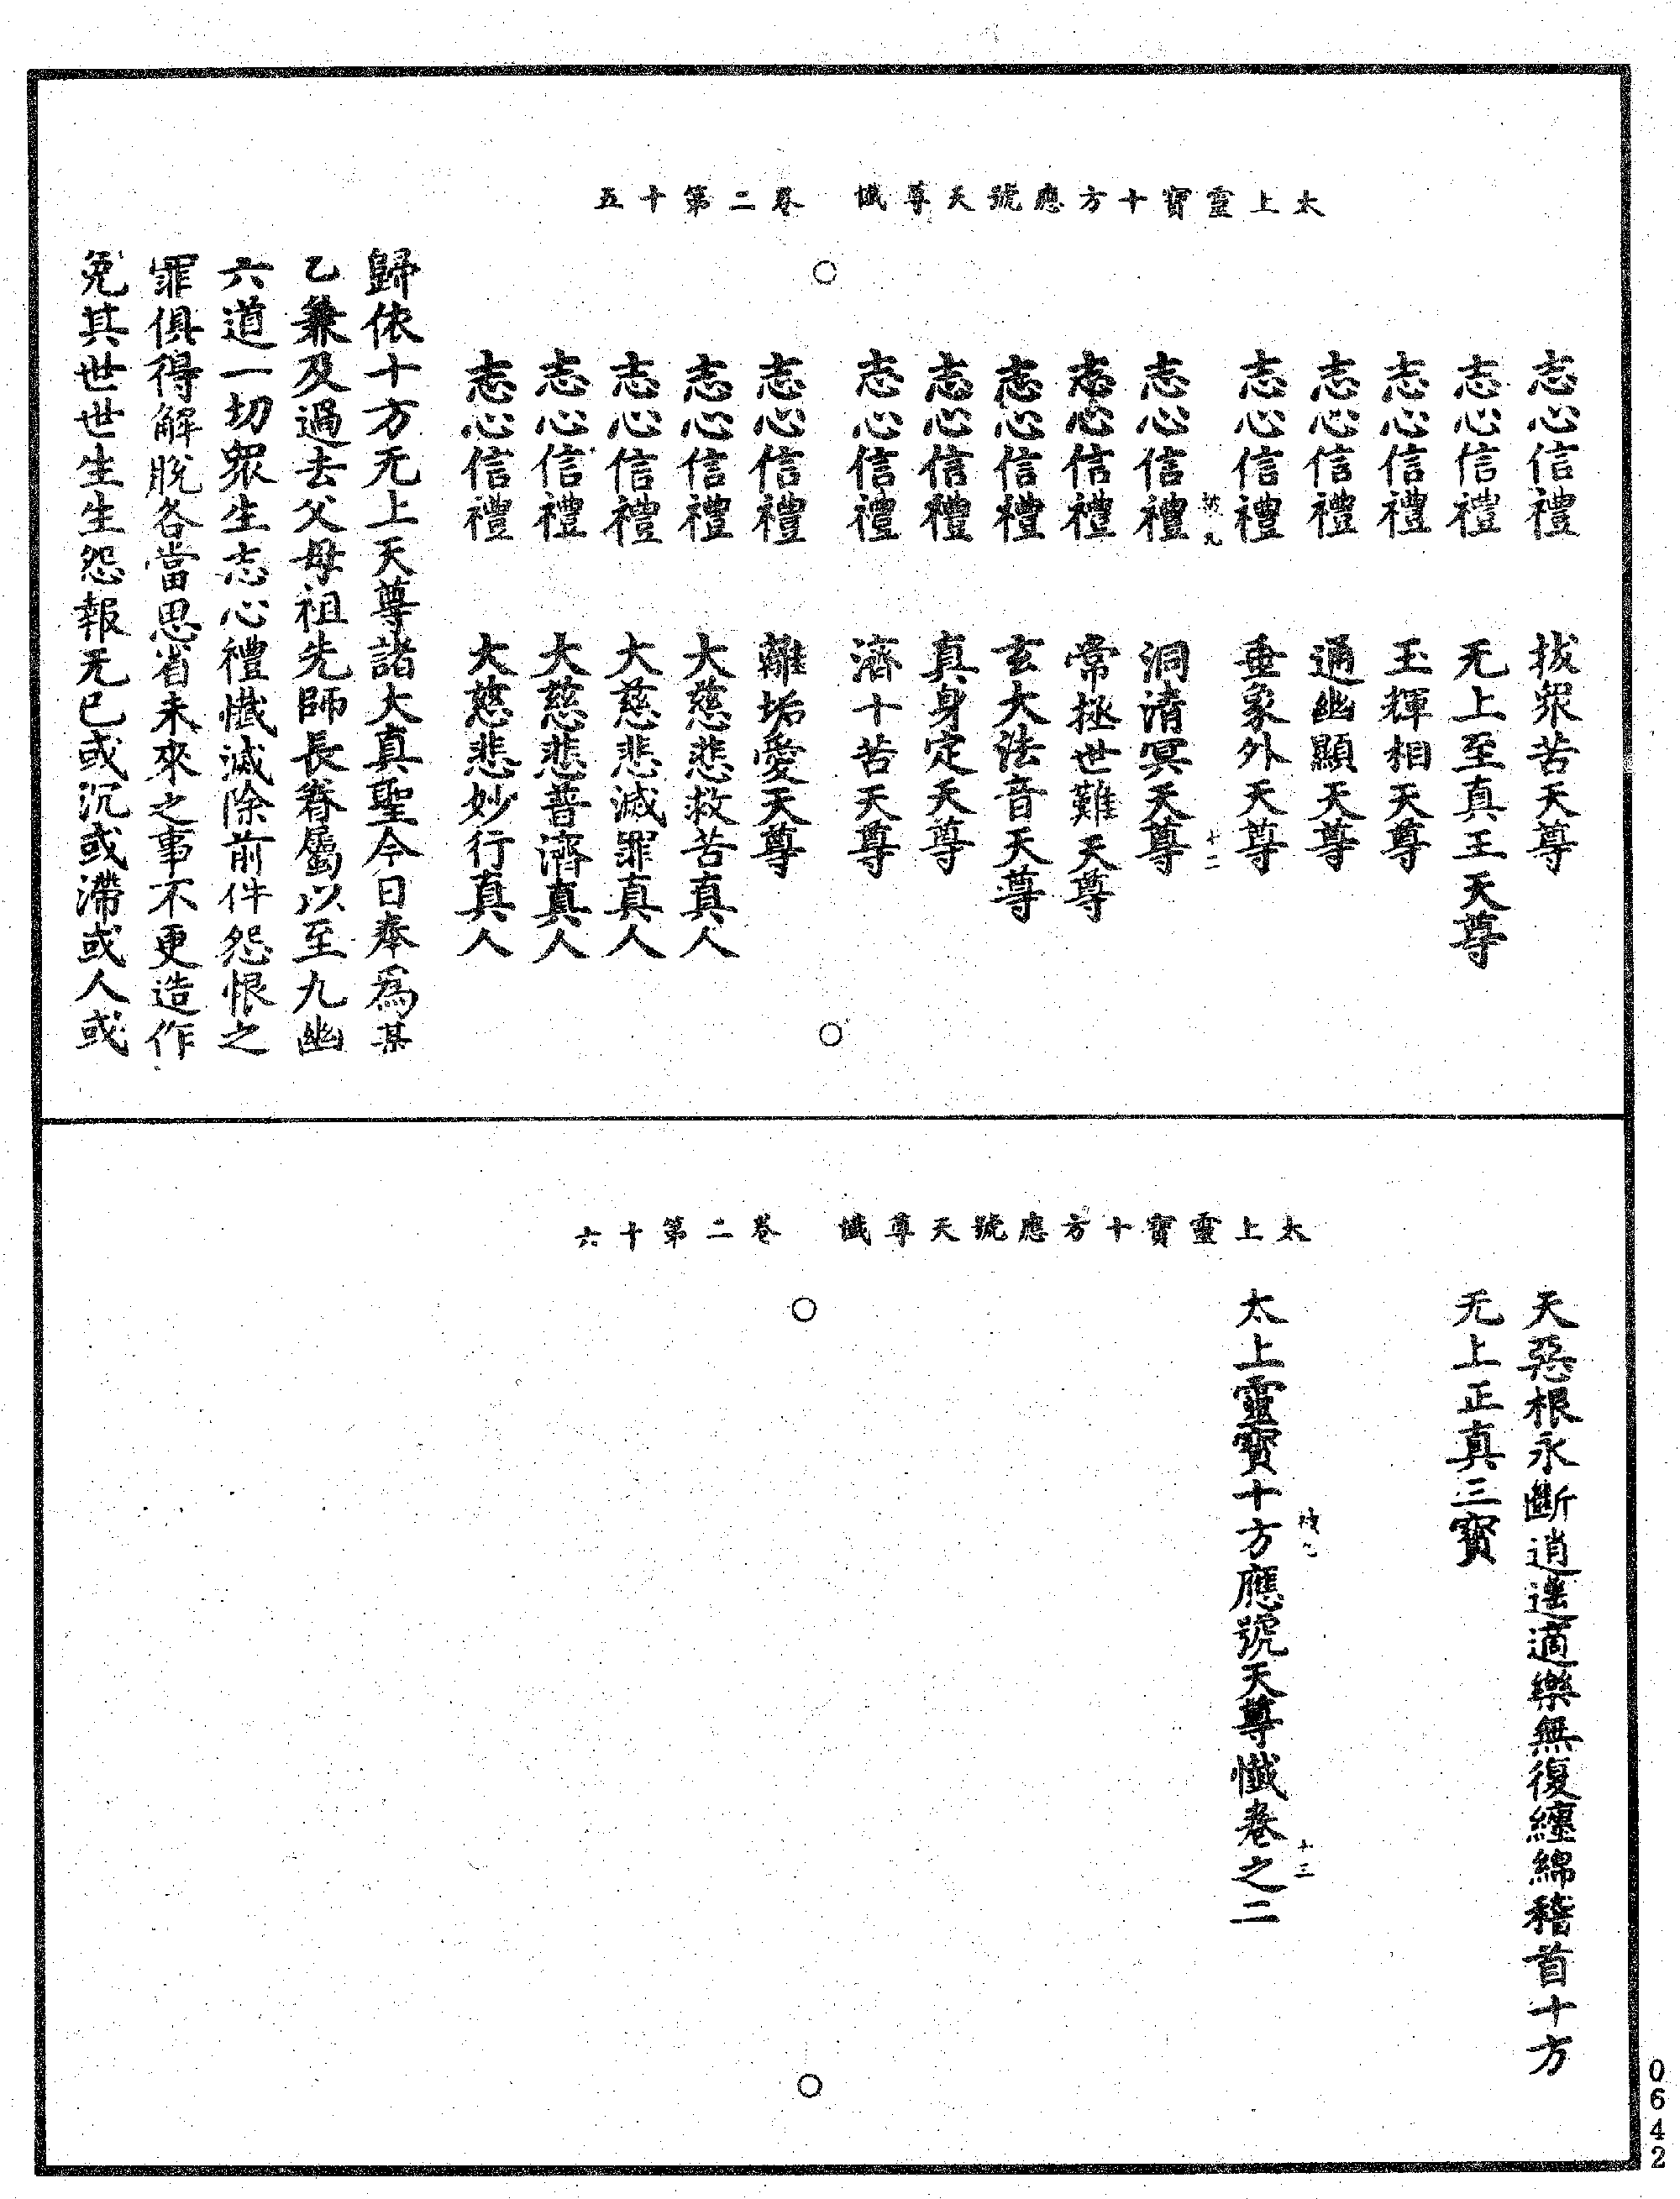 太上靈寶十方應號天尊懺　卷二第十五
志心信禮　拔眾苦天尊
志心信禮　无上至真王天尊
志心信禮　玉輝相天尊
志心信禮　通幽顯天尊
志心信禮　垂象外天尊
十二
志心信禮　洞清冥天尊
志心信禮　常拯世難天尊
志心信禮　玄大法音天尊
志心信禮　真身定天尊
志心信禮　濟十苦天尊
志心信禮　離垢愛天尊
志心信禮　大慈悲救苦真人
志心信禮　大慈悲滅罪真人
志心信禮　大慈悲普濟真人
志心信禮　大慈悲妙行真人
歸依十方无上天尊諸大真聖今日奉為某
乙兼及過去父母祖先師長眷屬以至九幽
六道一切眾生志心禮懺滅除前件怨恨之
罪俱得解脫各當思省未來之事不更造作
免其世世生生怨報无已或沉或滯或人或
太上靈寶十方應號天尊懺　卷二第十六
天惡根永斷逍遙適樂無復纏綿稽首十方
无上正真三寶
十三
太上靈寶十方應號天尊懺卷之二
0642